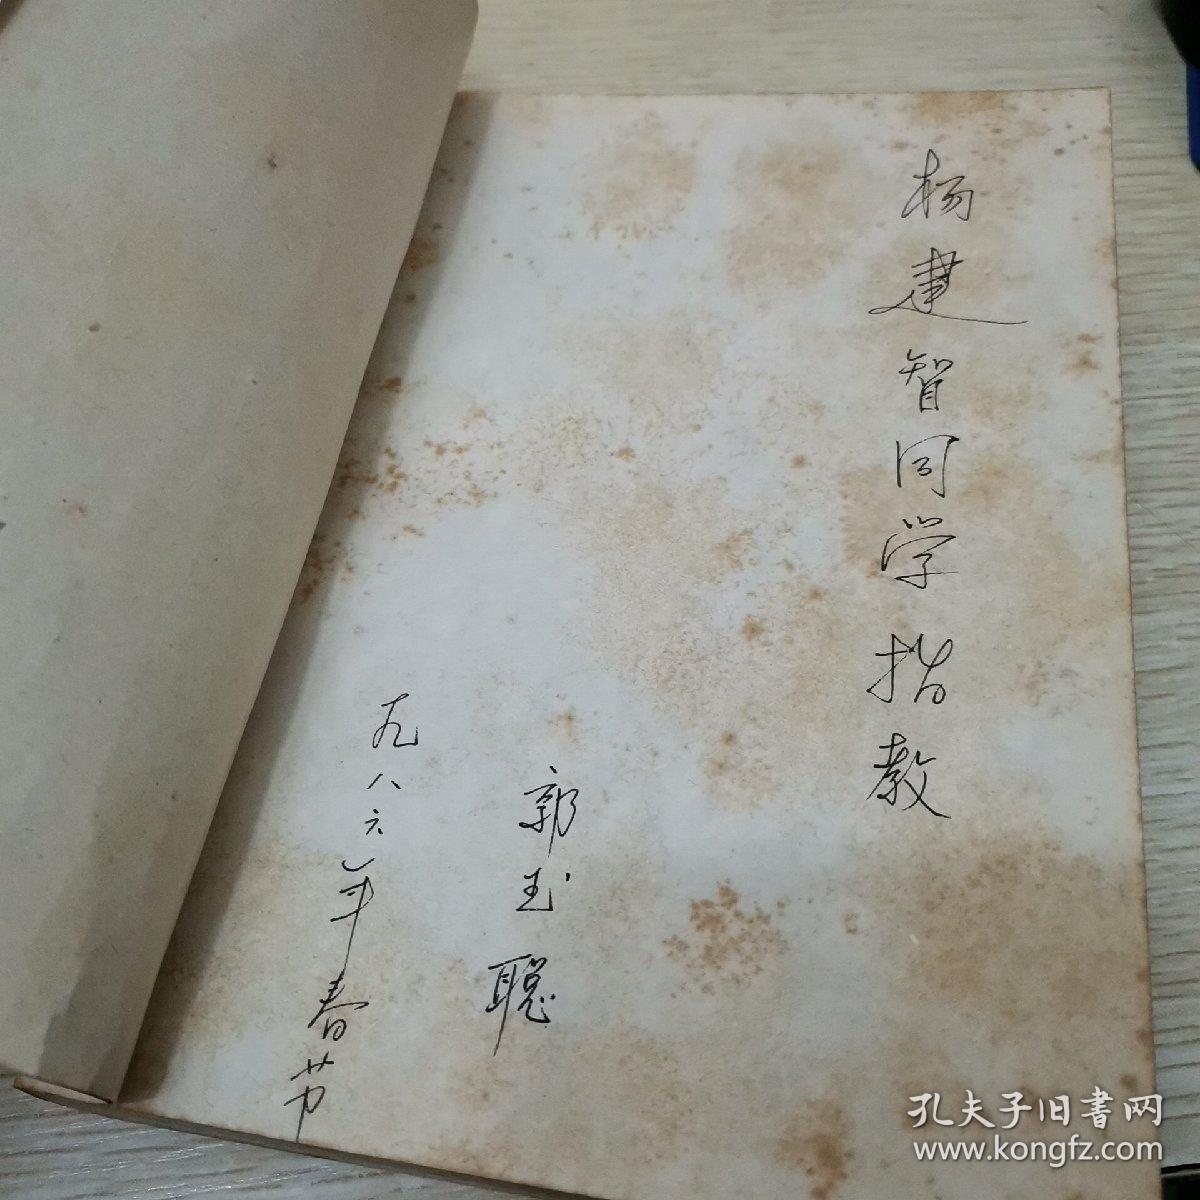 杨建智同学指教
郭玉聪
一九八六年春节
孔夫子旧書网
www.kongfz.com